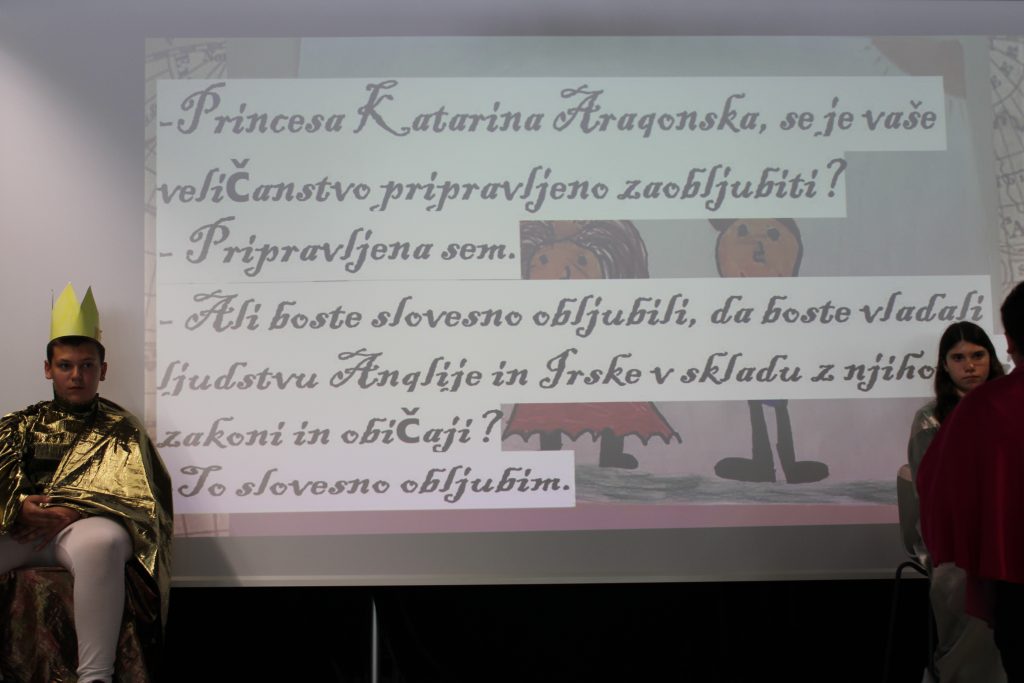 -Princesa Katarina Aragonska, se je vaše
veličanstvo pripravljeno zaobljubiti?
- Pripravljena sem.
- Ali boste slovesno obljubili, da boste vladali
ljudstvu Anglije in Irske v skladu z njiho
zakoni in običaji?
- To slovesno obljubim.